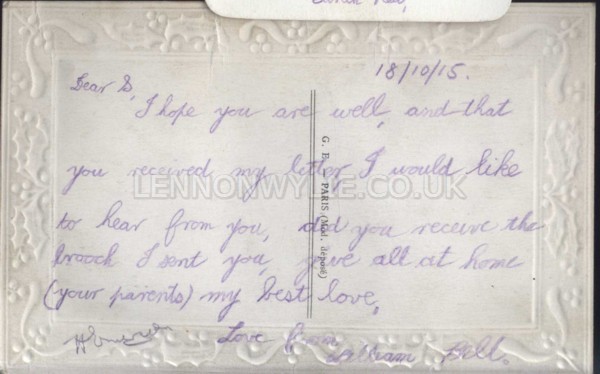 18/10/15.
Dear S,
I hope you are well, and that
you received my letter, I would like
to hear from you, did you receive the
brooch I sent you, give all at home
(your parents) my best love,
Love from
William Bell.
G. B. — PARIS (Mod. déposé)
LENNONWYLIE.CO.UK